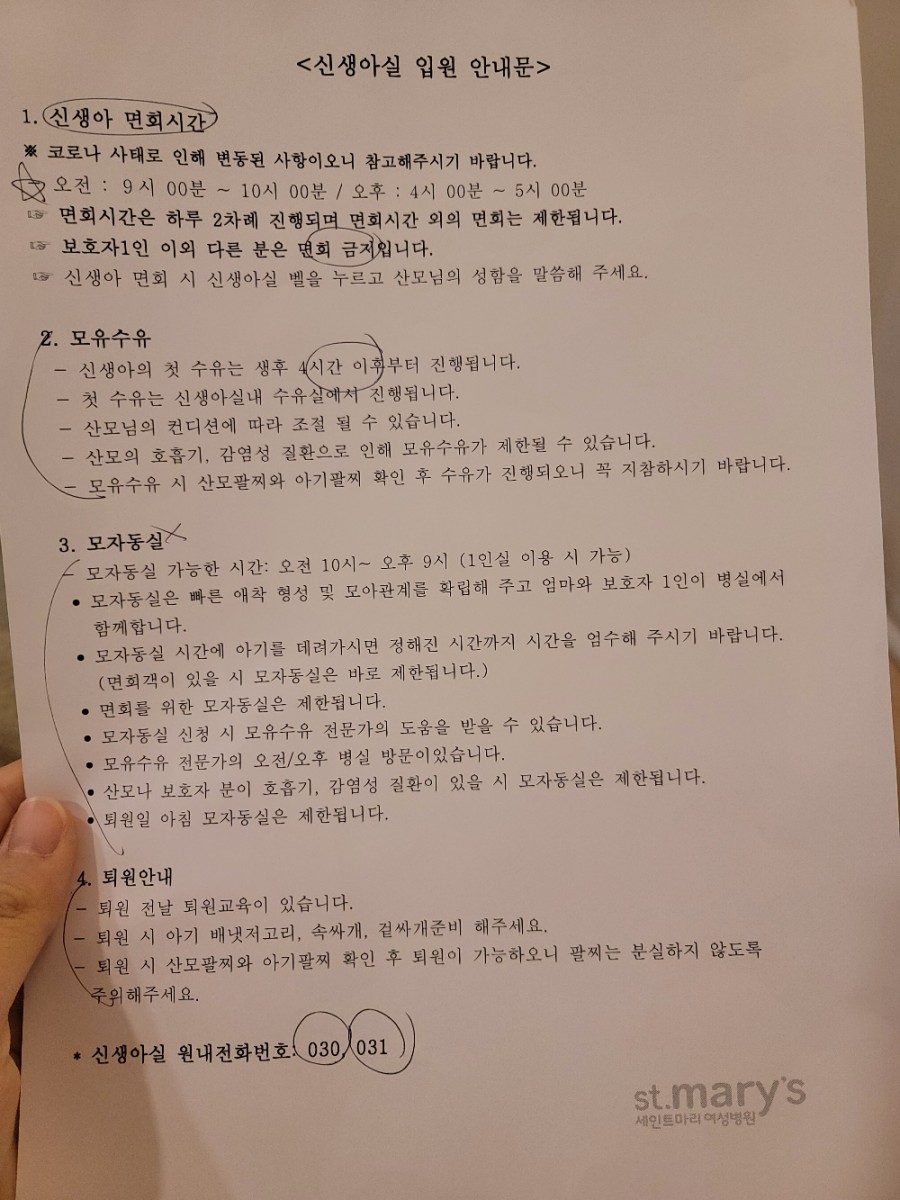 <신생아실 입원 안내문>
1. 신생아 면회시간
※ 코로나 사태로 인해 변동된 사항이오니 참고해주시기 바랍니다.
- 오전 : 9시 00분 ~ 10시 00분 / 오후 : 4시 00분 ~ 5시 00분
☞ 면회시간은 하루 2차례 진행되며 면회시간 외의 면회는 제한됩니다.
☞ 보호자1인 이외 다른 분은 면회 금지입니다.
☞ 신생아 면회 시 신생아실 벨을 누르고 산모님의 성함을 말씀해 주세요.
2. 모유수유
- 신생아의 첫 수유는 생후 4시간 이후부터 진행됩니다.
- 첫 수유는 신생아실내 수유실에서 진행됩니다.
- 산모님의 컨디션에 따라 조절 될 수 있습니다.
- 산모의 호흡기, 감염성 질환으로 인해 모유수유가 제한될 수 있습니다.
- 모유수유 시 산모팔찌와 아기팔찌 확인 후 수유가 진행되오니 꼭 지참하시기 바랍니다.
3. 모자동실
- 모자동실 가능한 시간: 오전 10시~ 오후 9시 (1인실 이용 시 가능)
• 모자동실은 빠른 애착 형성 및 모아관계를 확립해 주고 엄마와 보호자 1인이 병실에서
함께합니다.
• 모자동실 시간에 아기를 데려가시면 정해진 시간까지 시간을 엄수해 주시기 바랍니다.
(면회객이 있을 시 모자동실은 바로 제한됩니다.)
• 면회를 위한 모자동실은 제한됩니다.
• 모자동실 신청 시 모유수유 전문가의 도움을 받을 수 있습니다.
• 모유수유 전문가의 오전/오후 병실 방문이있습니다.
• 산모나 보호자 분이 호흡기, 감염성 질환이 있을 시 모자동실은 제한됩니다.
• 퇴원일 아침 모자동실은 제한됩니다.
4. 퇴원안내
- 퇴원 전날 퇴원교육이 있습니다.
- 퇴원 시 아기 배냇저고리, 속싸개, 겉싸개준비 해주세요.
- 퇴원 시 산모팔찌와 아기팔찌 확인 후 퇴원이 가능하오니 팔찌는 분실하지 않도록
주의해주세요.
* 신생아실 원내전화번호: 030, 031
st.mary's
세인트마리 여성병원